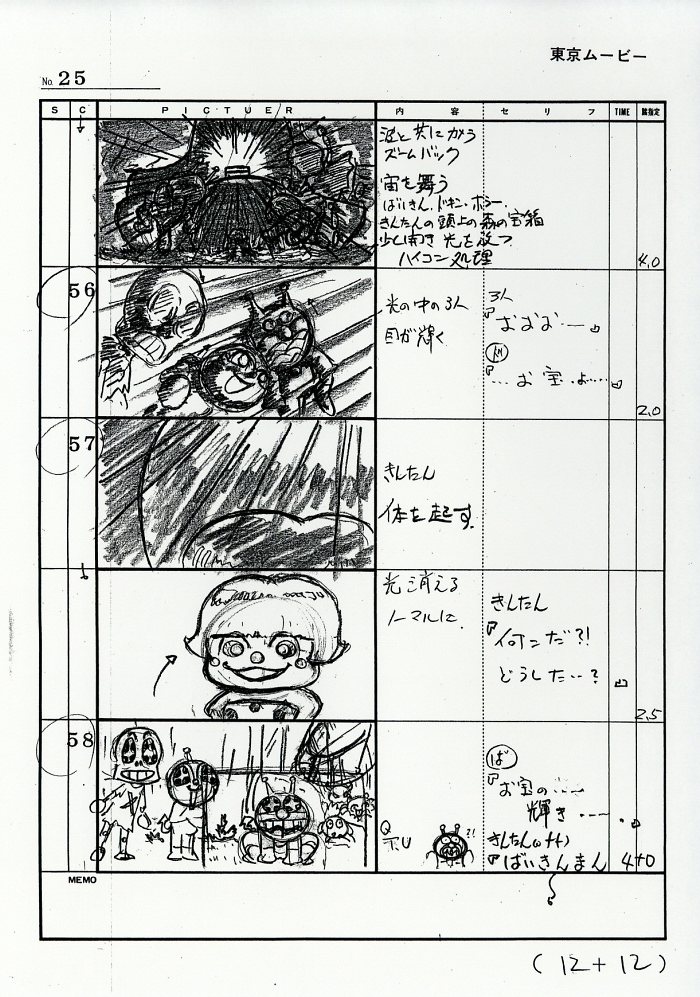 東京ムービー
No. 25
S C PICTUER 内容 セリフ TIME
波と共にカメラ
ズームバック
宙を舞う
ばいきん、ドキン・ホラー、
きんたんの頭上の森の宝箱
少し開き 光を放つ
ハイコン処理
4.0
56
光の中の3人
目が輝く
3人
『おおお―』
ド
『…お宝よ……』
2.0
57
きんたん
体を起す。
光消える
ノーマルに。
きんたん
『何ンだ?!
どうした…?』
2.5
58
Q
T.U
?!
ば
『お宝の……
輝き……。』
きんたん(off)
『ばいきんまん
4+0
MEMO
(12+12)